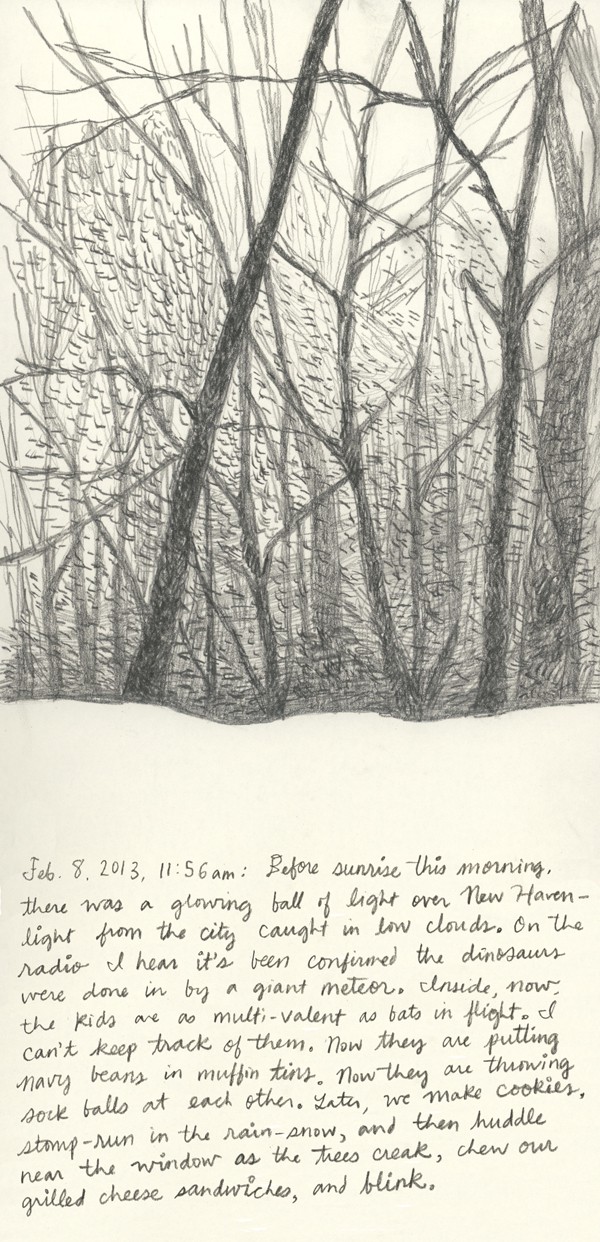 Feb. 8, 2013, 11:56am: Before sunrise this morning,
there was a glowing ball of light over New Haven-
light from the city caught in low clouds. On the
radio I hear it's been confirmed the dinosaurs
were done in by a giant meteor. Inside, now,
the kids are as multi-valent as bats in flight. I
can't keep track of them. Now they are putting
navy beans in muffin tins. Now they are throwing
sock balls at each other. Later, we make cookies,
stomp-run in the rain-snow, and then huddle
near the window as the trees creak, chew our
grilled cheese sandwiches, and blink.